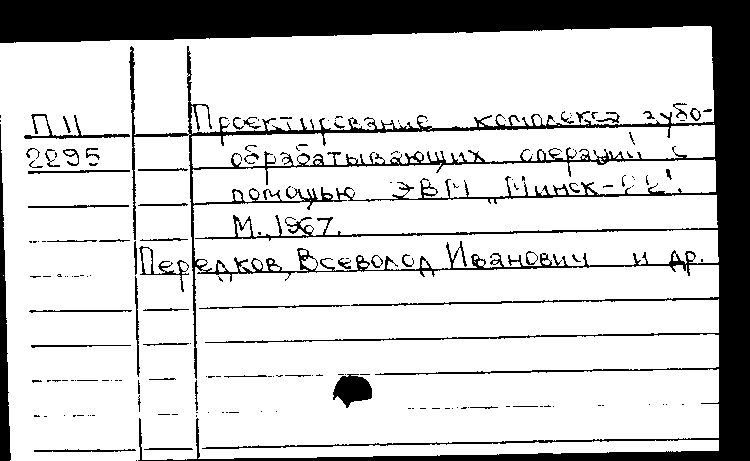 П 11
2295
Проектирование комплекса зубо-
обрабатывающих операций с
помощью ЭВМ „Минск-22".
М., 1967.
Передков, Всеволод Иванович и др.